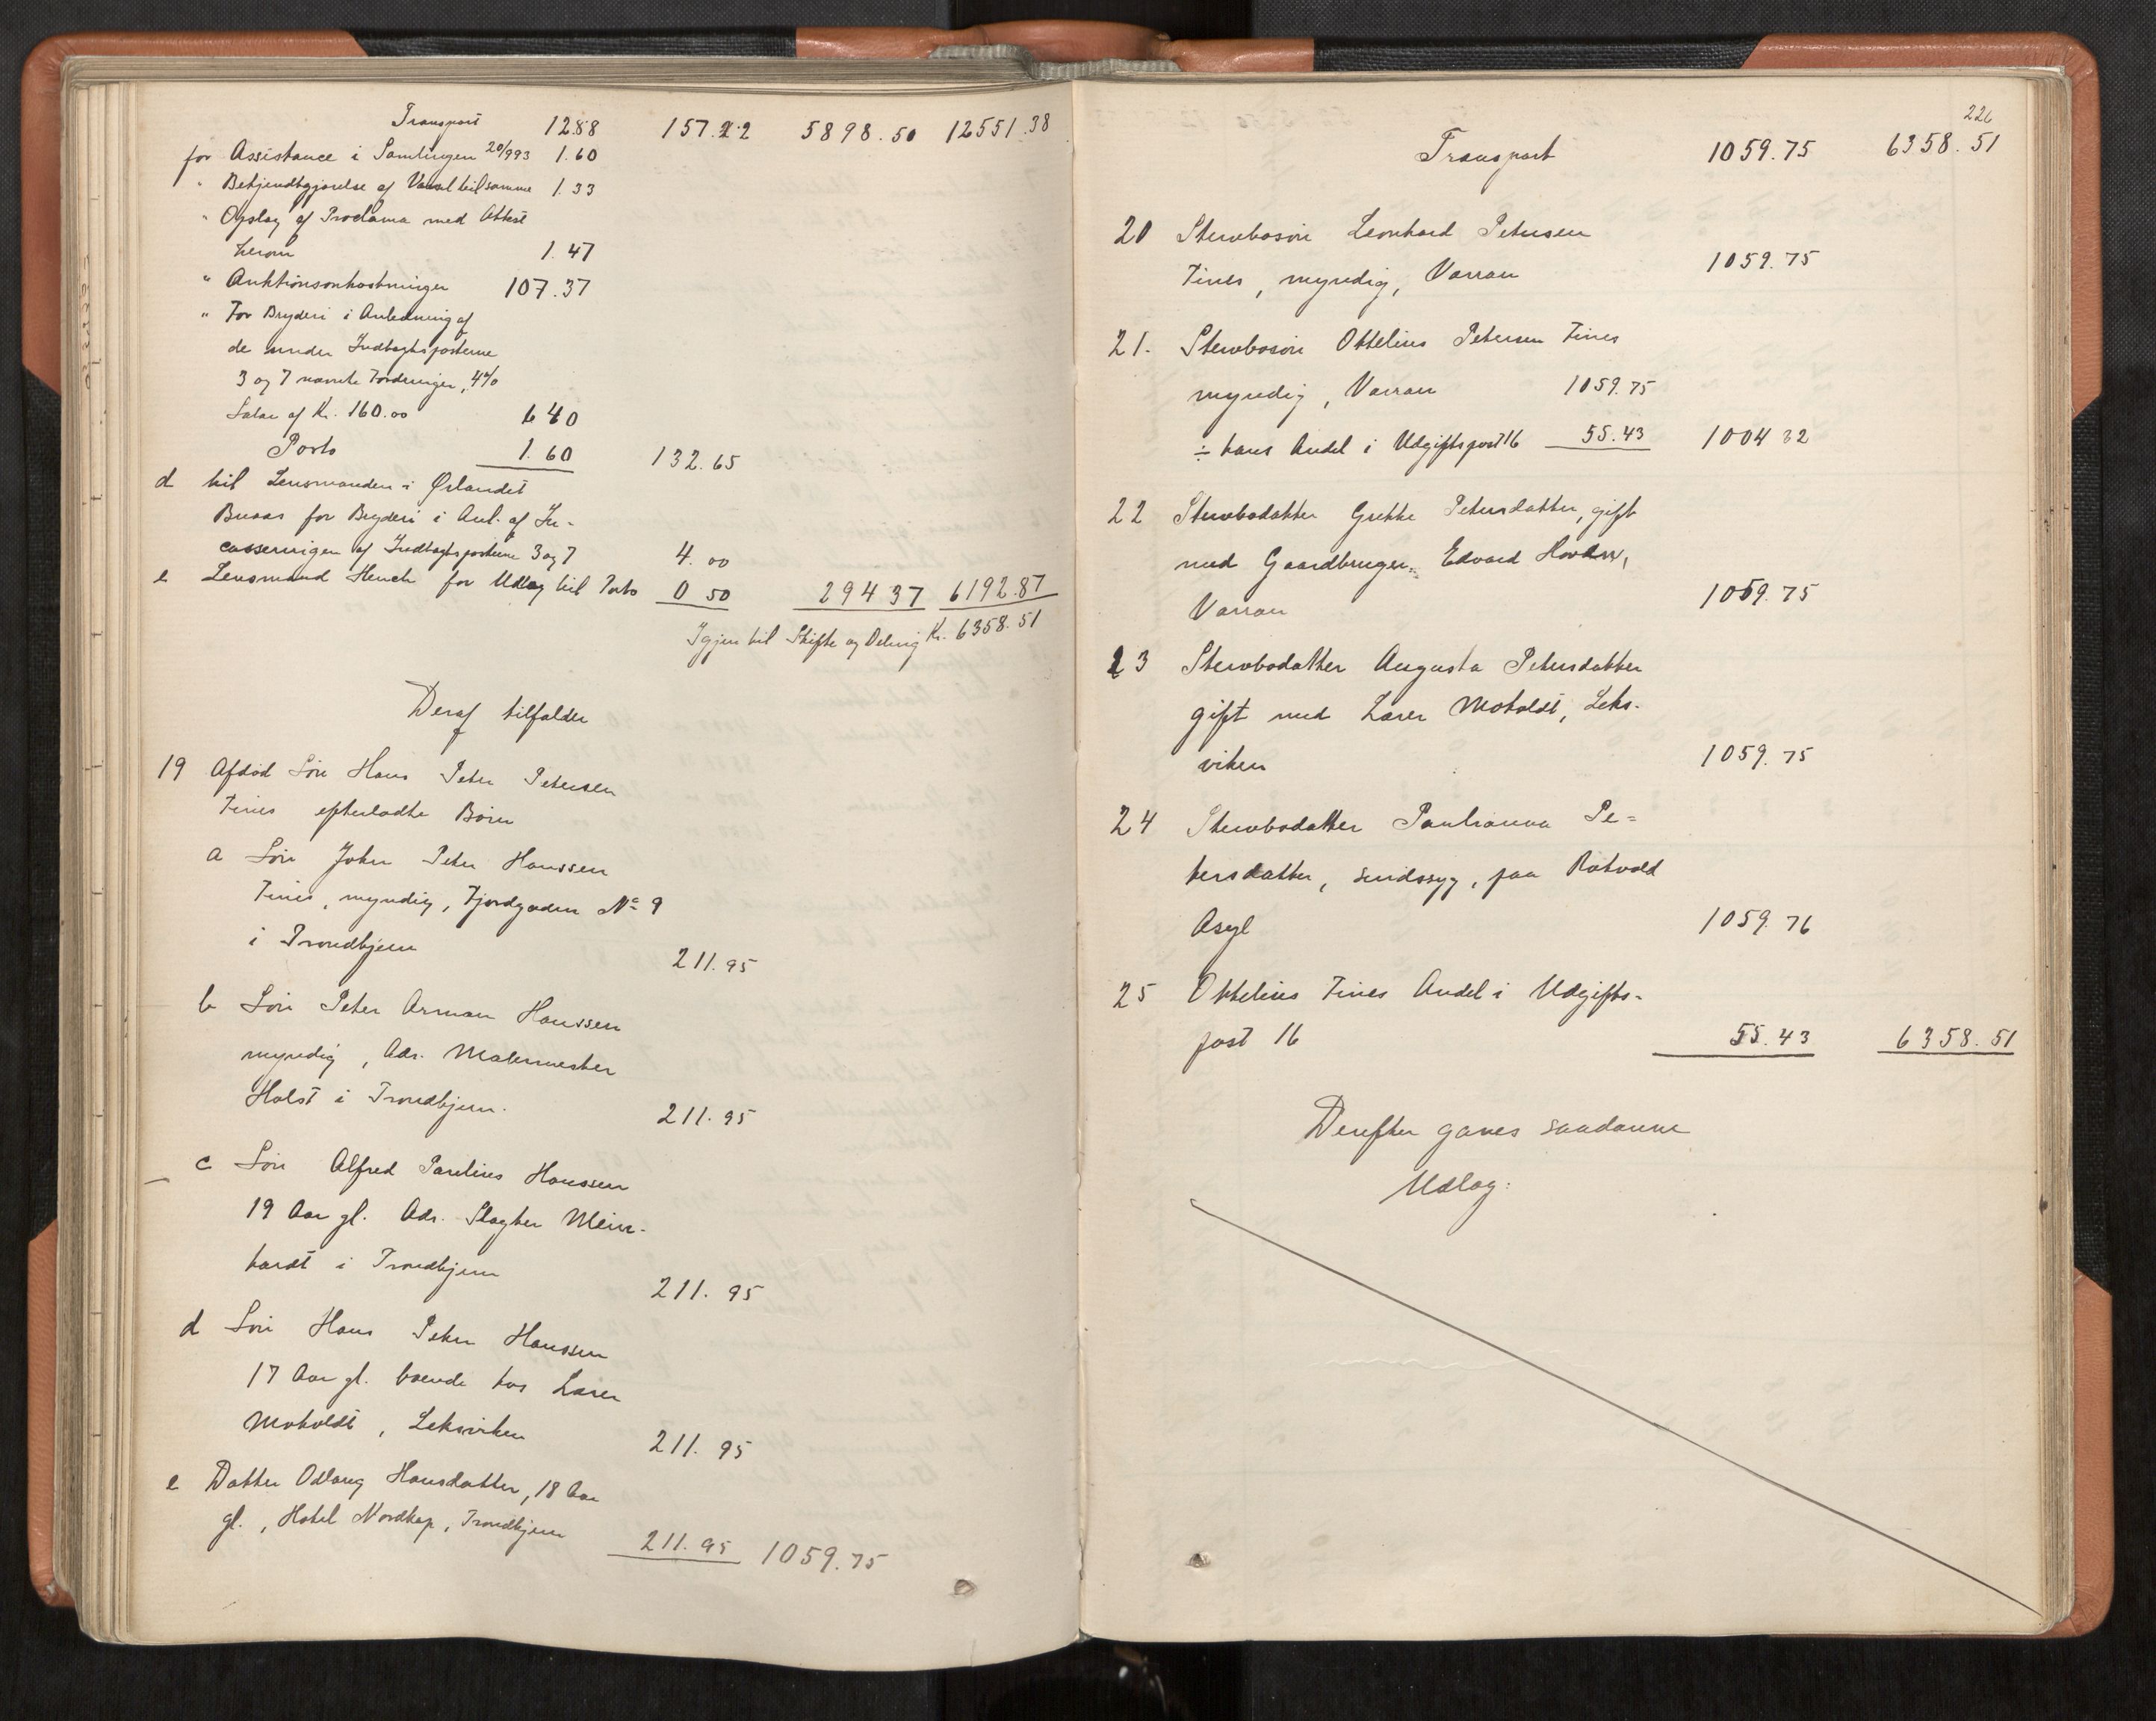 Transport 12.88 157.22 5898.50 12551.38
for Assistance i Samlingen 20/993 1.60
" Bekjendtgjørelse af Varsel til samme 1.33
" Opslag af Proclama med Attest
herom 1.47
" Auktionsomkostninger 107.37
" For Bryderi i Anledning af
de under Indtægtsposterne
3 og 7 nævnte Fordringer, 4%
Salær af Kr. 160.00 6 40
Porto 1.60 132.65
d til Lensmanden i Ørlandet
for Bryderi i Anl. af In-
casseringen af Indtægtsposterne 3 og 7 4.00
e Lensmand Hench for Udlæg til Porto 0 50 294 37 6192.87
Igjen til Skifte og Deling Kr. 6358.51
Deraf tilfalder
19 Afdød Søn Hans Peter Petersen
Tines efterladte Børn
a Søn John Peter Hanssen
Tines, myndig, Fjordgaden No 9
i Trondhjem 211.95
b Søn Peter Arman Hanssen
myndig, Adr. Malermester
Holst i Trondhjem. 211.95
c Søn Alfred Paulius Hanssen
19 Aar gl. Adr. Slagter Mein-
hardt i Trondhjem 211.95
d Søn Hans Peter Hanssen
17 Aar gl. boende hos Lærer
Moholdt, Leksviken 211.95
e Datter Odlaug Hansdatter, 18 Aar
gl., Hotel Nordkap, Trondhjem 211.95 1059.75
226
Transport 1059.75 6358.51
20 Stervbosøn Leonhard Petersen
Tines, myndig, Varran 1059.75
21. Stervbosøn Ottelius Petersen Tines
myndig, Varran 1059.75
÷ hans Andel i Udgiftspost 16 55.43 1004 32
22 Stervbodatter Grethe Petersdatter, gift
med Gaardbruger Edvard Hovden,
Varran 1059.75
23 Stervbodatter Augusta Petersdatter
gift med Lærer Moholdt, Leks-
viken 1059.75
24 Stervbodatter Paulianna Pe=
tersdatter, sindssyg, paa Rotvold
Asyl 1059.76
25 Ottelius Tines Andel i Udgifts-
post 16 55.43 6358.51
Derefter gjøres saadanne
Udlæg: